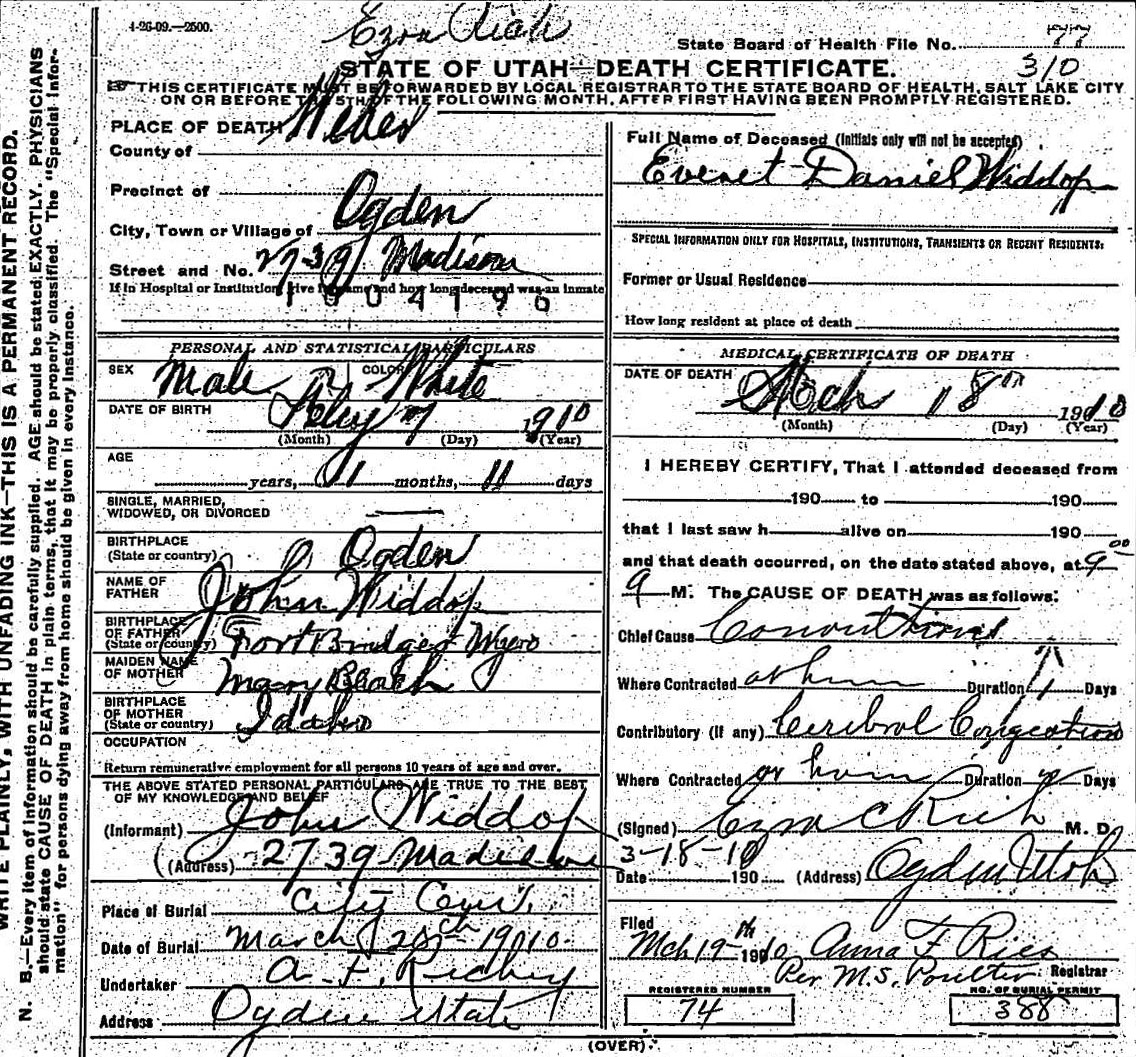 4-26-09.—2500.
Ezra Rich
State Board of Health File No. 77
310
STATE OF UTAH—DEATH CERTIFICATE.
THIS CERTIFICATE MUST BE FORWARDED BY LOCAL REGISTRAR TO THE STATE BOARD OF HEALTH, SALT LAKE CITY
ON OR BEFORE THE 5TH OF THE FOLLOWING MONTH, AFTER FIRST HAVING BEEN PROMPTLY REGISTERED.
WRITE PLAINLY, WITH UNFADING INK—THIS IS A PERMANENT RECORD.
N. B.—Every item of information should be carefully supplied. AGE should be stated EXACTLY. PHYSICIANS
should state CAUSE OF DEATH in plain terms, that it may be properly classified. The "Special Infor-
mation" for persons dying away from home should be given in every instance.
PLACE OF DEATH
County of Weber
Precinct of
City, Town or Village of Ogden
Street and No. 2739 Madison
If in Hospital or Institution, give its name and how long deceased was an inmate
1004190
PERSONAL AND STATISTICAL PARTICULARS
SEX Male COLOR White
DATE OF BIRTH Feby 7 1910
(Month) (Day) (Year)
AGE
years, 1 months, 11 days
SINGLE, MARRIED,
WIDOWED, OR DIVORCED
BIRTHPLACE
(State or country) Ogden
NAME OF
FATHER John Widdop
BIRTHPLACE
OF FATHER
(State or country) Fort Bridger Wyo
MAIDEN NAME
OF MOTHER Mary Beach
BIRTHPLACE
OF MOTHER
(State or country) Idaho
OCCUPATION
Return remunerative employment for all persons 10 years of age and over.
THE ABOVE STATED PERSONAL PARTICULARS ARE TRUE TO THE BEST
OF MY KNOWLEDGE AND BELIEF
(Informant) John Widdop
(Address) 2739 Madison
Place of Burial City Cem.
Date of Burial March 20th 1910
Undertaker A. F. Richey
Address Ogden Utah
Full Name of Deceased (Initials only will not be accepted)
Everet Daniel Widdop
SPECIAL INFORMATION ONLY FOR HOSPITALS, INSTITUTIONS, TRANSIENTS OR RECENT RESIDENTS:
Former or Usual Residence
How long resident at place of death
MEDICAL CERTIFICATE OF DEATH
DATE OF DEATH
Mch 18th 1910
(Month) (Day) (Year)
I HEREBY CERTIFY, That I attended deceased from
190 to 190
that I last saw h alive on 190
and that death occurred, on the date stated above, at 9 00
M. The CAUSE OF DEATH was as follows:
Chief Cause Convulsions
Where Contracted at home Duration 1 Days
Contributory (if any) Cerebral Congestion
Where Contracted at home Duration Days
(Signed) Ezra C Rich M. D.
3-18-10
Date 190 (Address) Ogden Utah
Filed
Mch 19th 1910 Anna F. Ries
Per M.S. Poulter. Registrar
REGISTERED NUMBER NO. OF BURIAL PERMIT
74 388
(OVER)